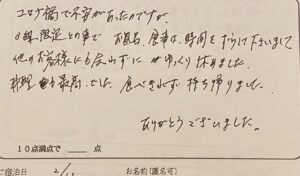 コロナ禍で不安があったのですが、
8組限定との事で お風呂、食事は、時間を ずらして下さいまして
他のお客様にも会わずに ゆっくり 休めました。
料理も最高でした 食べきれず 持ち帰りました。
ありがとうございました。
10点満点で 点
ご宿泊日 2/ お名前(匿名可)